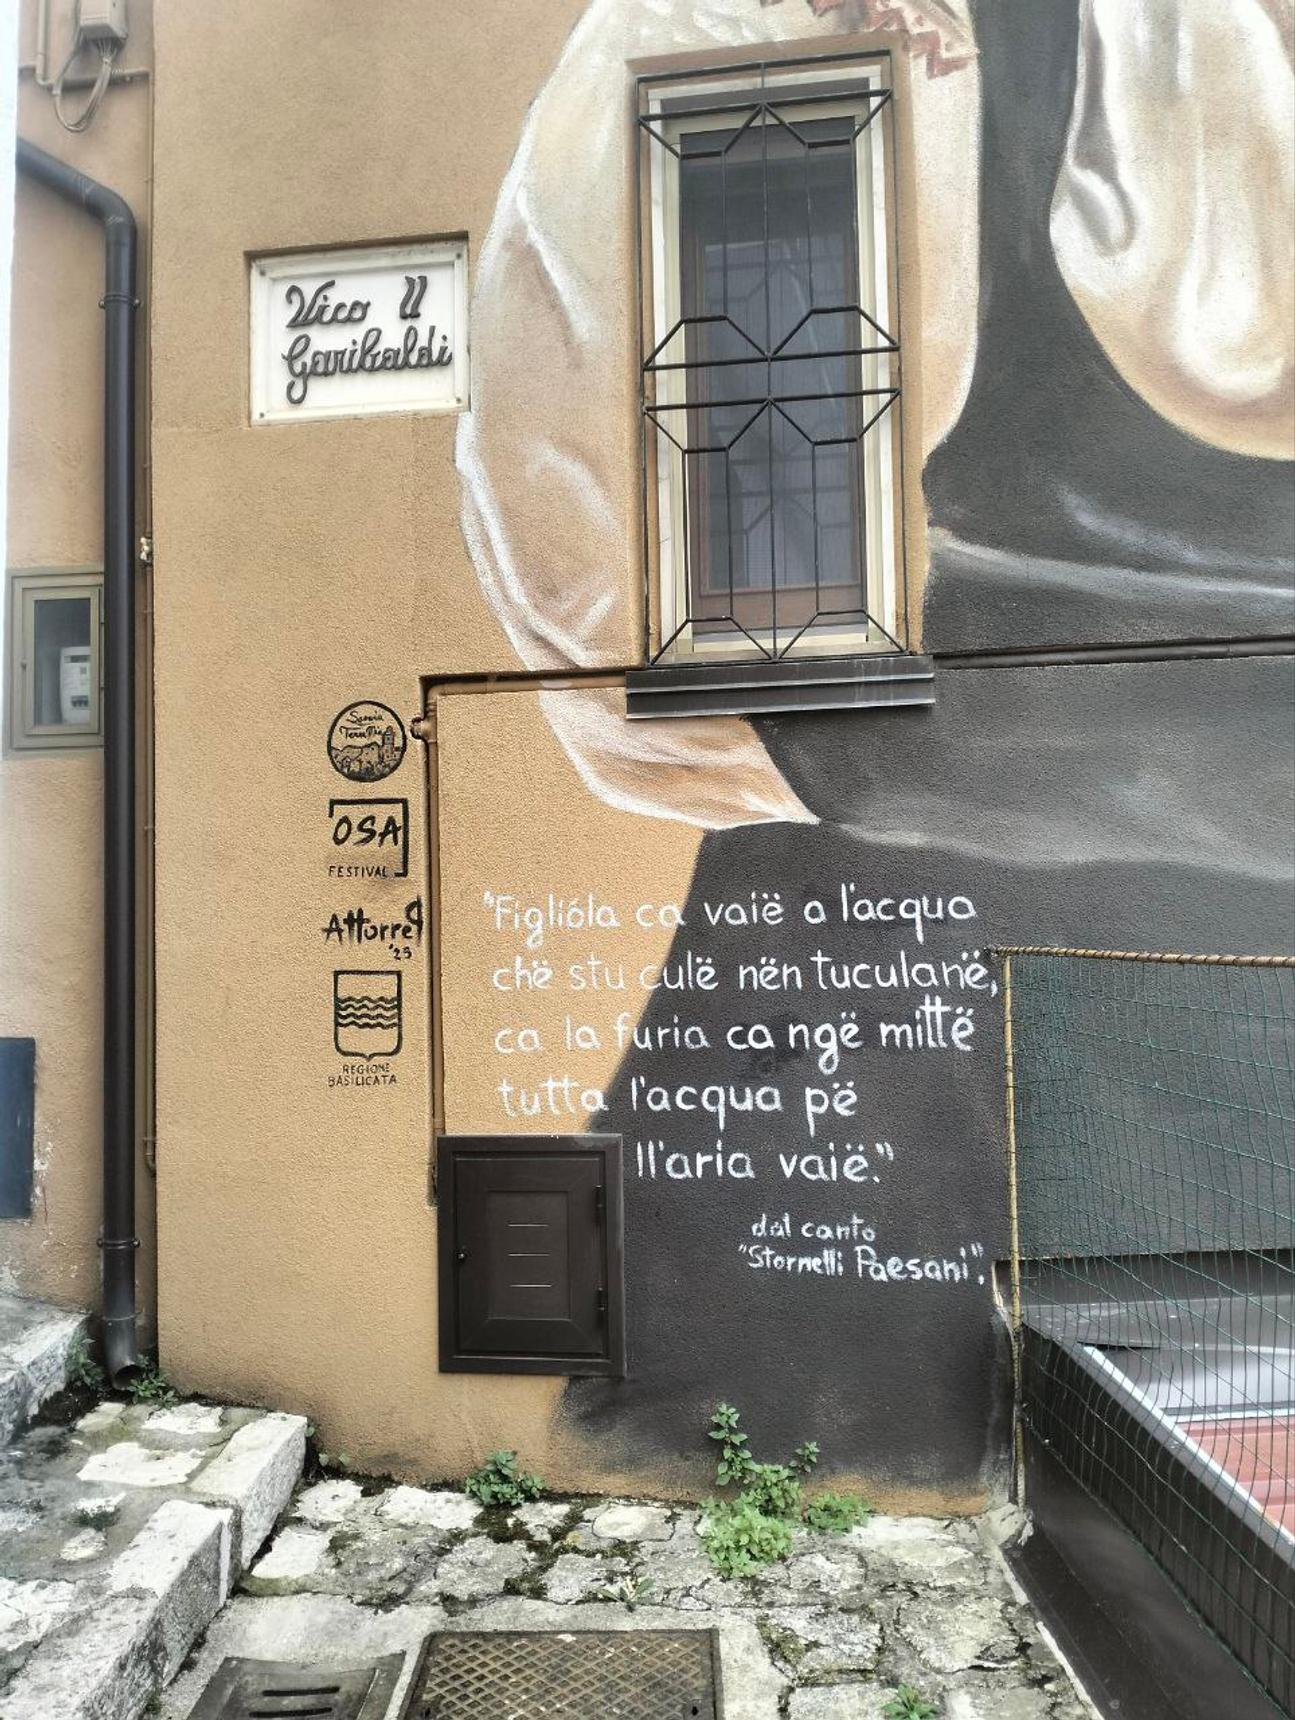 Vico II
Garibaldi
Savoia
OSA
FESTIVAL
Attorrep
'25
REGIONE
BASILICATA
"Figlióla ca vaië a l'acqua
chë stu culë nën tuculanë,
ca la furia ca ngë mittë
tutta l'acqua pë
ll'aria vaië."
dal canto
"Stornelli Paesani".